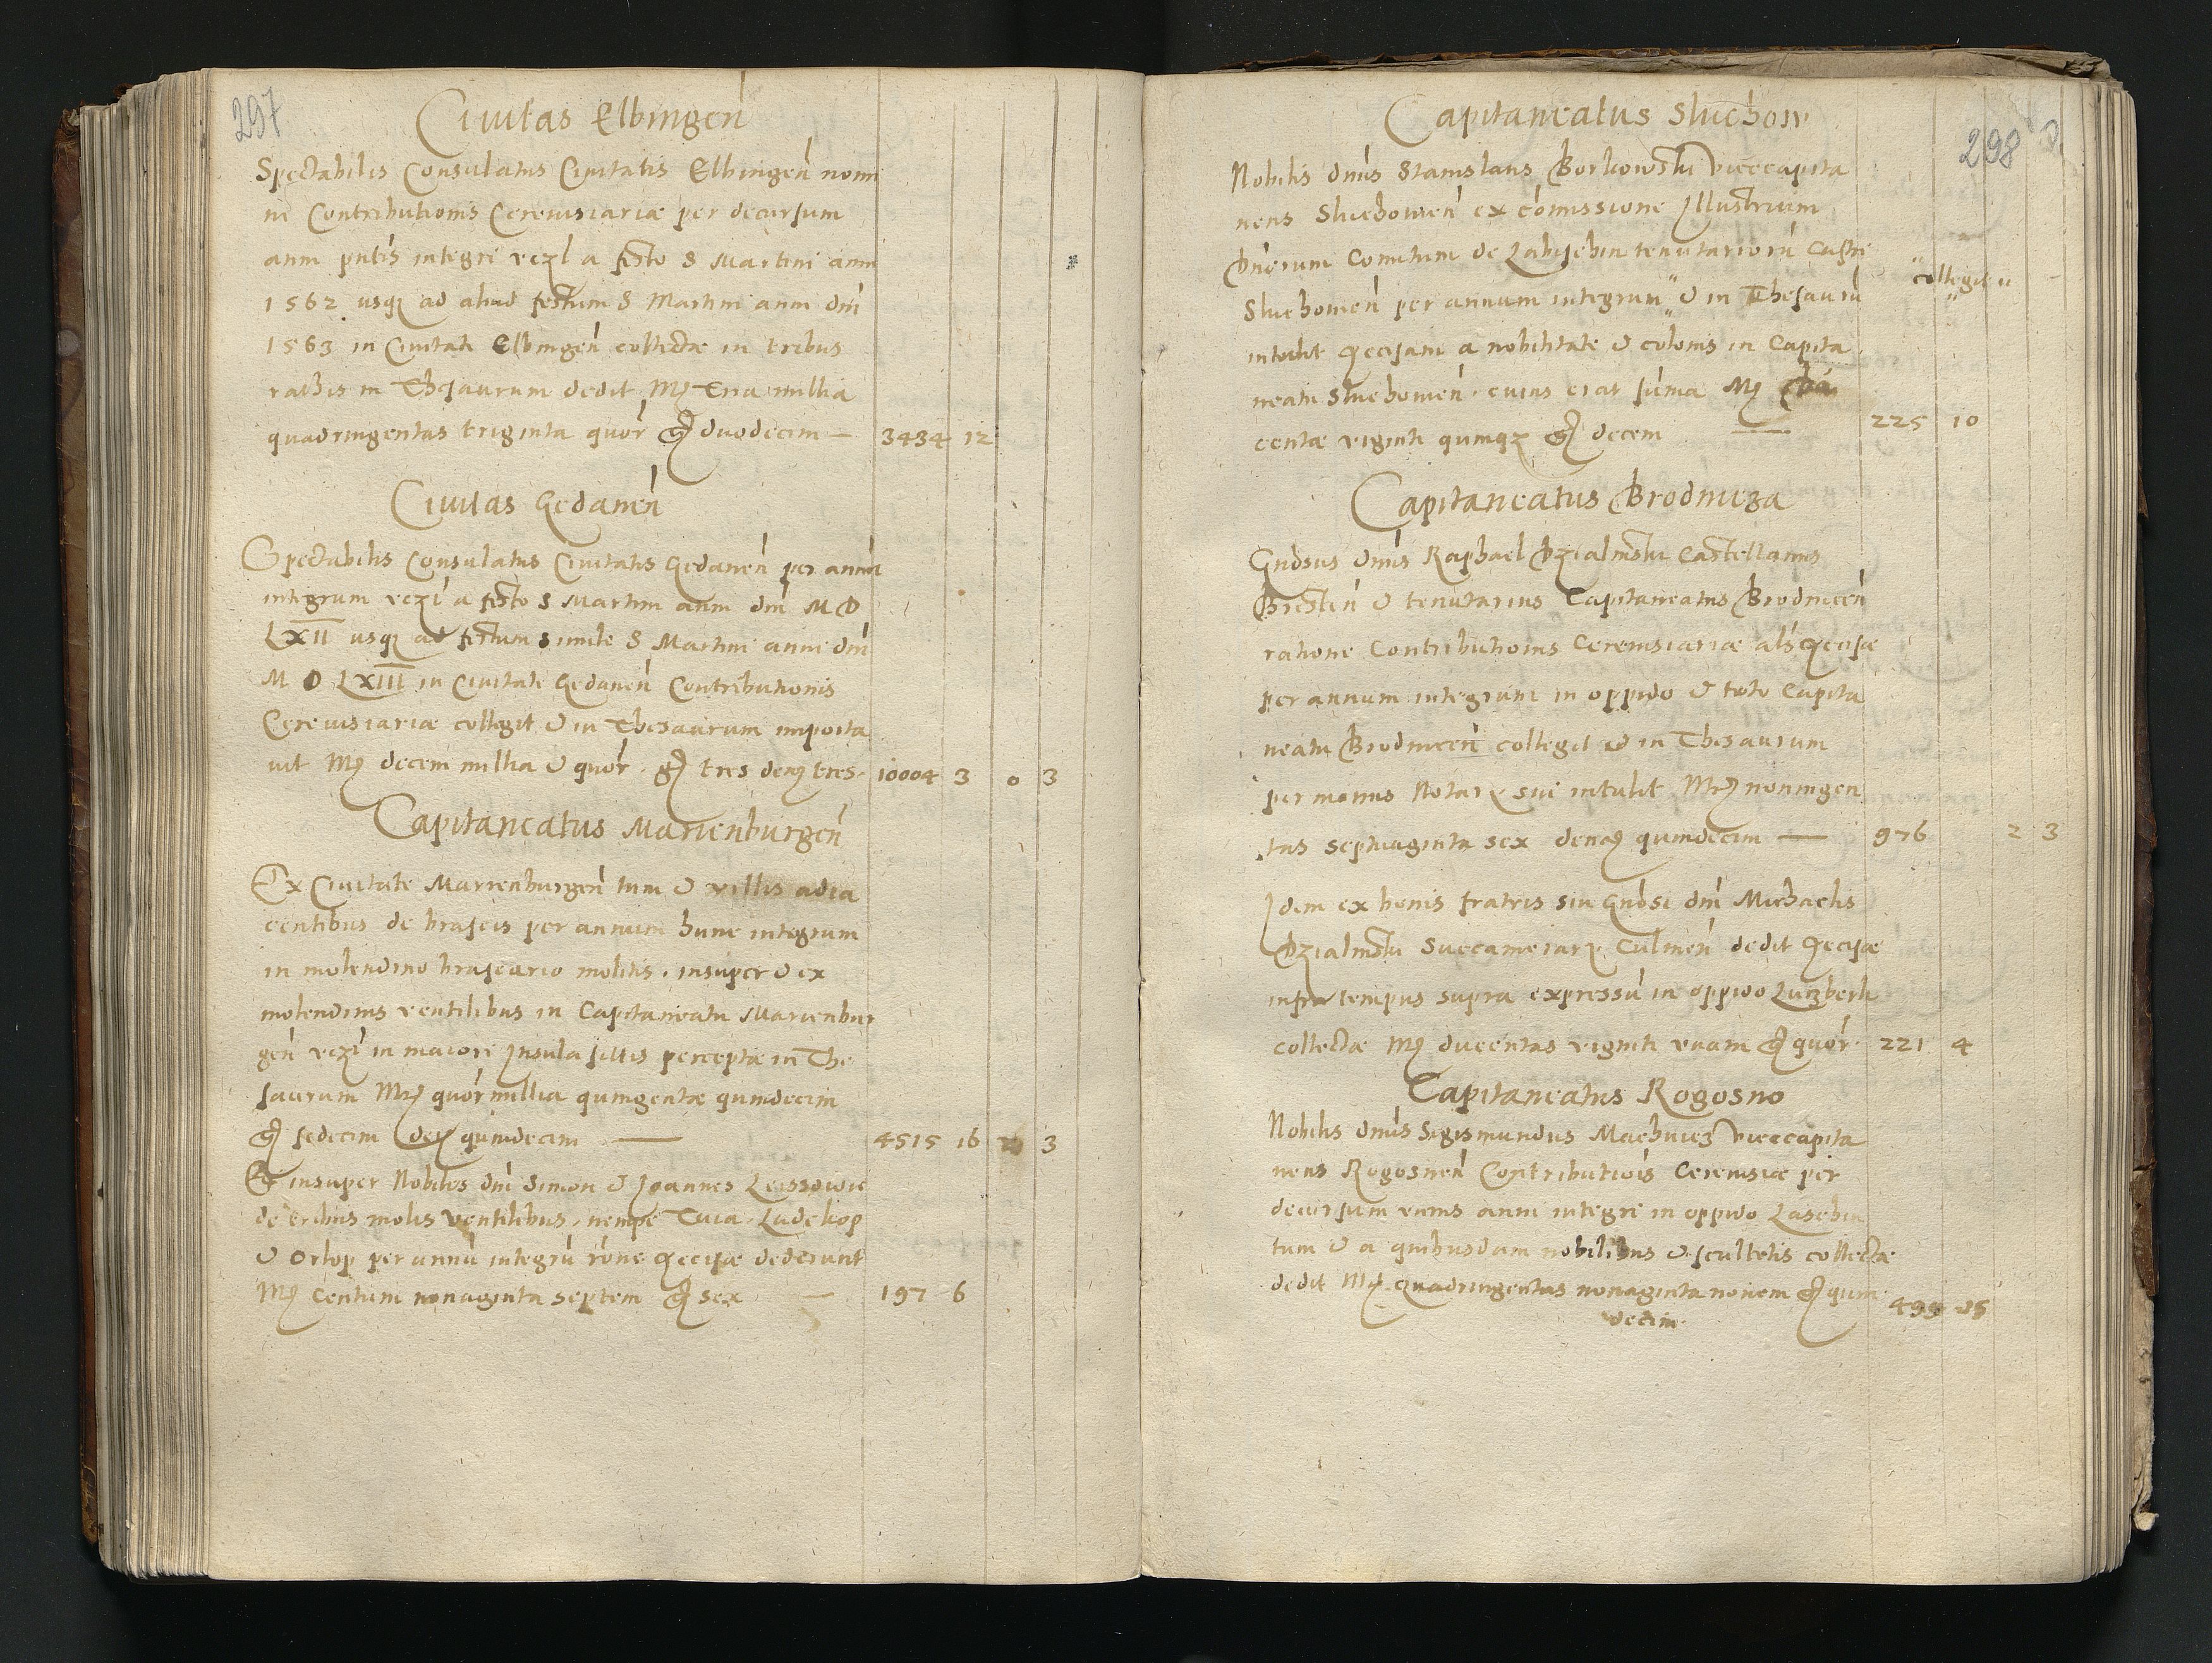 297
Ciuitas Elbingeń
Spectabilis Consulatus Ciuitatis Elbingeń nomi
ne Contributionis Cereuisiariæ per decursum
anni pntis integri vczl a festo S Martini anni
1562 usqz ad aliud festum S Martini anni dni
1563 in Ciuitate Elbingeń collectæ in tribus
rathis in Thesaurum dedit Mꝶ Tria millia
quadringentas triginta quor gꝶ duodecim — 3434 12
Ciuitas Gedaneń
Spectabilis Consulatus Ciuitatis Gedaneń per annū
integrum vczl a festo S Martini anni dni M D
LXII usqz ad festum simile S Martini anni dni
M D LXIII in Ciuitate Gedaneń Contributionis
Cereuisiariæ collegit & in Thesaurum importa
uit Mꝶ decem millia & quor . gꝶ tres denꝶ tres . 10004 3 0 3
Capitaneatus Marienburgeń
Ex Ciuitate Marienburgeń tum & villis adia
centibus de braseis per annum hunc integrum
in molendino braseario molitis . insuper & ex
molendinis ventilibus in Capitaneatu Marienbur
geń vczl in maiori Insula sittis perceptæ in The
saurum Mꝶ quor millia quingentæ quindecim
gꝶ sedecim deꝶ quindecim — 4515 16 2 3
Et insuper Nobiles dni Simon & Joannes Leissowic
de tribus molis ventilibus . nempe Tuia . Ladekop
& Orlop per annū integrū rone Czeisæ dederunt
Mꝶ Centum nonaginta septem gꝶ sex — 197 6
298
Capitaneatus Sluchow
Nobilis dnus Stanislaus Borkowski Vicecapita
neus Sluchowień ex comissione Illustrium
Dnorum Comitum de Labischin tenutariorū Castri
Sluchowień per annum integrum " & in Thesaurū " collegit "
intulit Czeisam a nobilitate & colonis in Capita
neatu Sluchowień . cuius erat suma Mꝶ
centæ viginti quinqz gꝶ decem — 225 10
Capitaneatus Brodnicza
Gnosus dnus Raphael Dzialinski Castellanus
Bresteń & tenutarius Capitaneatus Brodniceń
ratione Contributionis Cereuisiariæ als Czeisæ
per annum integrum in oppido & toto Capita
neatu Brodniceń collegit ac in Thesaurum
per manus Notarÿ sui intulit Mꝶ noningen
tas septuaginta sex denꝶ quindecim — 976 2 3
Idem ex bonis fratris sui Gnosi dni Michaelis
Dzialinski Succamerarÿ Culmeń dedit Czeisæ
infra tempus supra expressū in oppido Lutzberk
collectæ Mꝶ ducentas viginti vnam gꝶ quor . 221 4
Capitaneatus Rogosno
Nobilis dnus Sigismundus Machwicz Vicecapita
neus Rogosneń Contributiois Cereuisiæ per
decursum vnius anni integri in oppido Laschin
tum & a quibusdam nobilibus & scultetis collectæ
dedit Mꝶ Quadringentas nonaginta nouem gꝶ quin
decim . 499 15